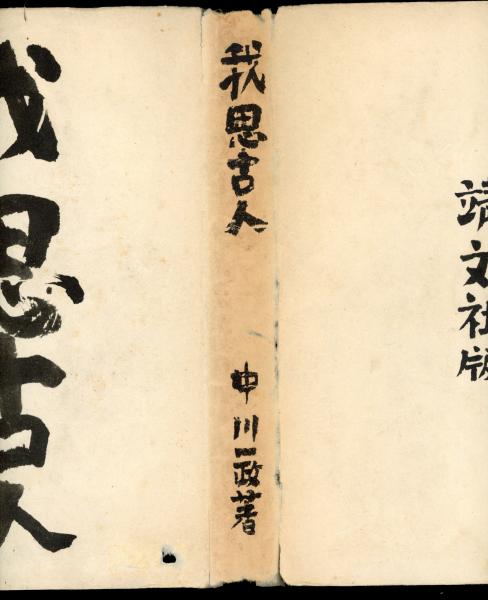 我思古人
中川一政著
我思古人
靖文社版